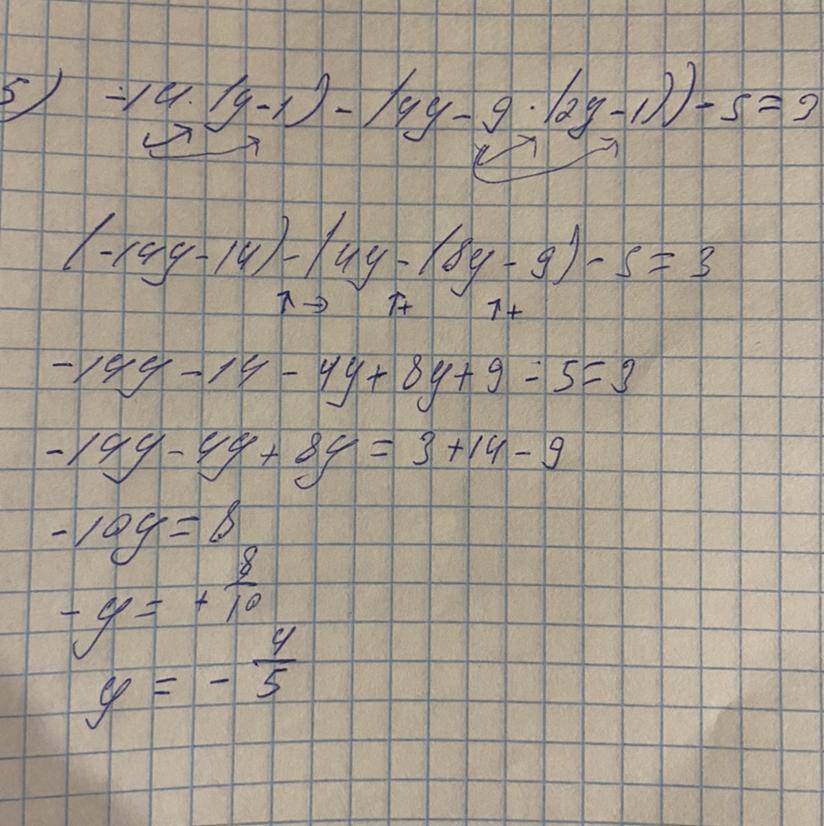 5) -14·(y-1)-(4y-9·(2y-1))-5=3
(-14y-14)-(4y-(8y-9)-5=3
-14y-14-4y+8y+9-5=3
-14y-4y+8y=3+14-9
-10y=8
-y=+8/10
y=-4/5